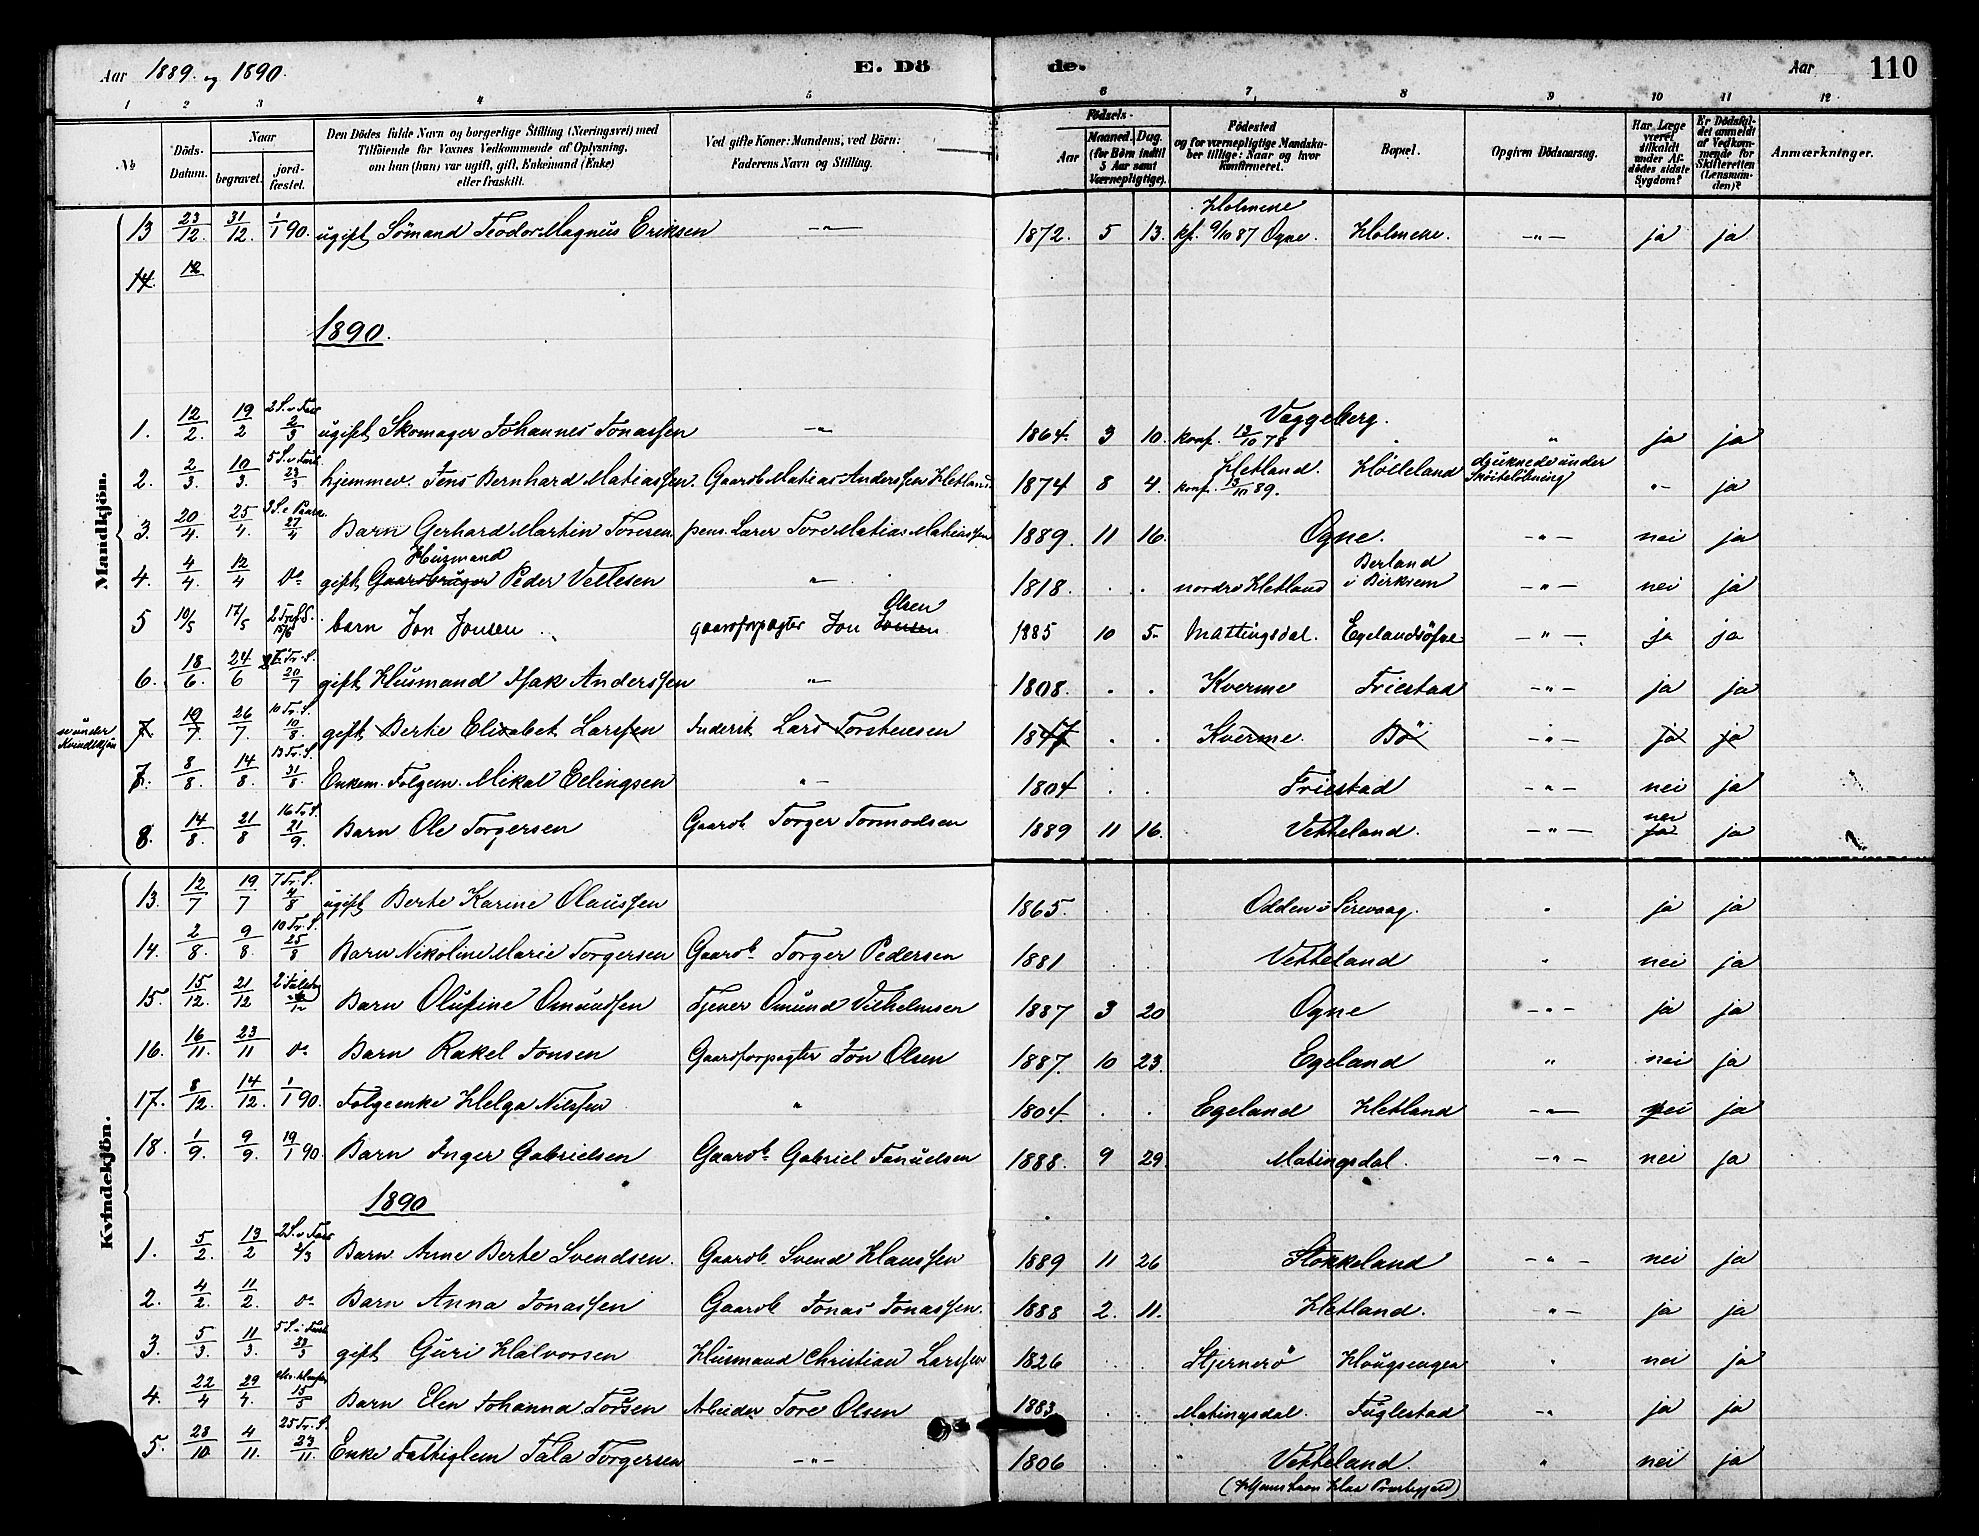 Aar 1889. og 1890. E. Dö de. Aar 110
1 2 3 4 5 6 7 8 9 10 11 12
No
Döds-Datum.
Naar
begravet.
jordfæstet.
Den Dödes fulde Navn og borgerlige Stilling (Næringsvei) med Tilföiende for Voxnes Vedkommende af Oplysning, om han (hun) var ugift, gift, Enkemand (Enke) eller fraskilt.
Ved gifte Koner: Mandens, ved Börn: Faderens Navn og Stilling.
Födsels-
Aar
Maaned. Dag.
(for Börn indtil 5 Aar samt Værnepligtige).
Födested og for værnepligtige Mandskaber tillige: Naar og hvor Konfirmeret.
Bopæl.
Opgiven Dödsaarsag.
Har Læge været tilkaldt under Afdödes sidste Sygdom?
Er Dödsfaldet anmeldt af Vedkommende for Skifteretten (Lensmanden)?
Anmærkninger.
Mandkjön.
13 23/12. 31/12. 1/1 90. ugift Sömand Teodor Magnus Eriksen —"— 1872. 5 13. Holmene kf. 9/10 87 Ogne. Holmene. —"— ja ja
14. 12
1890.
1. 12/2. 19/2 2 S. i Fast 2/3 ugift Skomager Johannes Jonassen —"— 1864. 3 10. Væggeberg. konf. 13/10 78 " ja ja
2. 2/3. 10/3. 5 S. i Fast 23/3 hjemmev. Jens Bernhard Matiassen. Gaardb. Matias Anderssen Hetland. 1874 8 4. Hetland. konf. 13/10 89. Hölleland druknede under Sköiteløbning "- ja
3. 20/4. 25/4. 3 S. e Paaske 27/4 Barn Gerhard Martin Toresen. pens. Lærer Tore Matias Matiassen 1889. 11 16. Ogne. —"— nei ja
4. 4/4. 12/4 do gift Gaardbruger Husmand Peder Vetlesen " 1818. . . nordre Hetland Berland i Birkrem —"— nei ja
5 10/5 17/5 2 Tref. S. 15/6 barn Jon Jonsen gaardforpagter Jon Jonsen Olsen 1885 10 5. Mattingsdal. Egelandsöfre —"— ja ja
6. 18/6. 24/6 20/7 gift Husmand Isak Anderssen " 1808. . . Kverme Friestad —"— ja ja
under Kvindekjön 7. 19/7 26/7. 10 Tr. S. 10/8 gift Berte Elisabet Larssen Inderst Lars Torstensen 1847 . . Kverme Bö —"— ja ja
7. 8/8. 14/8. 13 Tr. S. 31/8. Enkem. Folgem. Mikal Erlingsen "— 1804 . . Friestad —"— nei ja
8. 14/8. 21/8 16 Tr. S. 21/9. Barn Ole Torgersen Gaardb. Torger Tormodsen 1889 11 16. Vetteland. —"— nei ja ja
Kvindekjön.
13. 12/7 19/7 7 Tr. S. 4/8 ugift Berte Karine Olaussen 1865. . . Odden i Sirevaag. " ja ja
14. 2/8. 9/8. 10 Tr. S. 25/8 Barn Nikoline Marie Torgersen Gaardb. Torger Pedersen 1881 . . Vetteland " nei ja
15. 15/12. 21/12 Barn Olufine Omundsen Tjener Omund Vilhelmsen 1887 3 20 Ogne —"— ja ja
16. 16/11. 23/11 do Barn Rakel Jonsen Gaardforpagter Jon Olsen 1887. 10 23. Egeland " nei ja
17. 8/12. 14/12. 1/1 90. Folgeenke Helga Nilssen " 1804. . . Egeland Hetland —"— nei ja
18. 1/9. 9/9. 19/1 90. Barn Inger Gabrielsen Gaardb. Gabriel Tanuelsen 1888. 9 29. Matingsdal. —"— nei ja
1890
1. 5/2. 13/2 2 S. i Fast 2/3 Barn Anne Berte Svendsen. Gaardb. Svend Klaussen 1889 11 26 Stokkeland —"— nei ja
2. 4/2. 11/2. do Barn Anna Jonassen Gaardb. Jonas Jonassen. 1888 2. 11. Hetland. "— ja ja
3. 5/3. 11/3. 5 S. i Fast 23/3 gift Guri Halvorsen Husmand Christian Larssen 1826 . . Stjernerö Haugsengen " nei ja
4. 22/4 29/4. 15/5 Barn Elen Johanna Torsen Arbeider Tore Olsen 1883 . . Matingsdal. Fuglestad "— ja ja
5. 28/10 4/11. 25 Tr. S. 23/11. Enke Fattiglem Tala Torgersen —"— 1806 . . " Vetteland. " nei ja